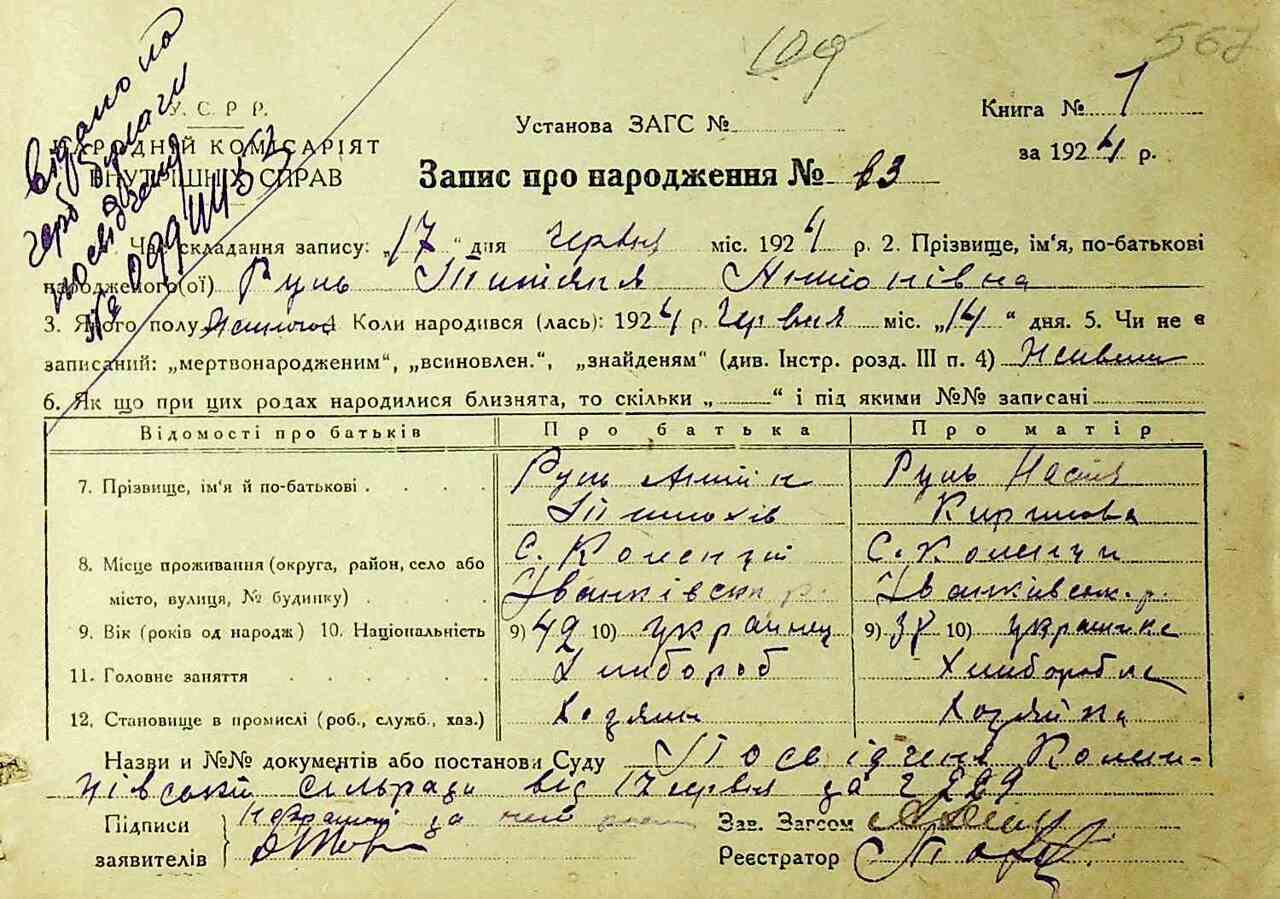 видано на
герб бумаги
посвідчення
109
567
У. С. Р. Р.
НАРОДНІЙ КОМІСАРІЯТ
ВНУТРІШНІХ СПРАВ
Установа ЗАГС №
Книга № 1
за 1924 р.
Запис про народження № 83
складання запису: „17“ дня червня міс. 1924 р. 2. Прізвище, ім'я, по-батькові
народженого(ої) Руль Титяня Антонівна
3. Якого полу 4 Коли народився (лась): 1924 р. червня міс. „14“ дня. 5. Чи не є
записаний: „мертвонародженим“, „всиновлен.“, „знайденям“ (див. Інстр. розд. III п. 4)
6. Як що при цих родах народилися близнята, то скільки „ “ і під якими №№ записані
Відомості про батьків Про батька Про матір
7. Прізвище, ім'я й по-батькові Руль Антін Руль Настя
Киримова
8. Місце проживання (округа, район, село або С. Коленції С. Коленци
місто, вулиця, № будинку) Іванківськ. р. Іванківськ. р.
9. Вік (років од народж) 10. Національність 9) 42 10) українец 9) 38 10) украинка
11. Головне заняття Хлибороб Хлиборобка
12. Становище в промислі (роб., служб., хаз.) Хозяин Хозяйка
Назви и №№ документів або постанови Суду Посвідченя Колен-
ківської сільради від 17 червня за ч 229
Підписи за
заявителів
Зав. Загсом
Реєстратор